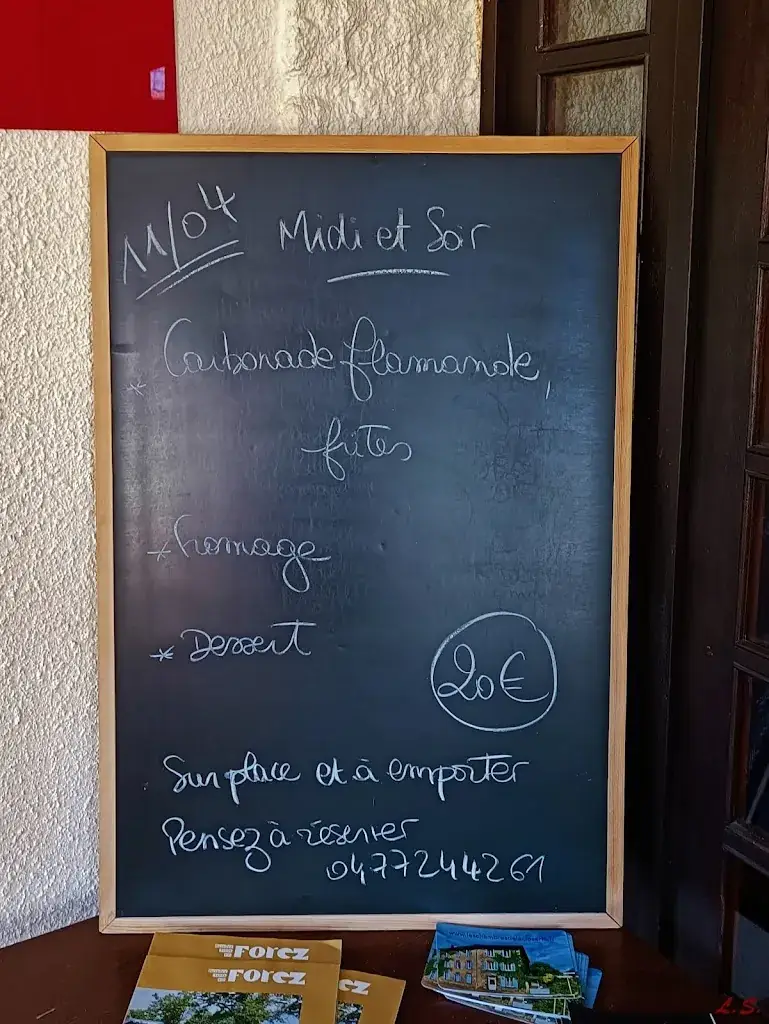 11/04 Midi et Soir
* Carbonade flamande,
frites
* fromage
* Dessert
20€
Sur place et à emporter
Pensez à réserver
0477244261
FOREZ
FOREZ
EZ
L.S.